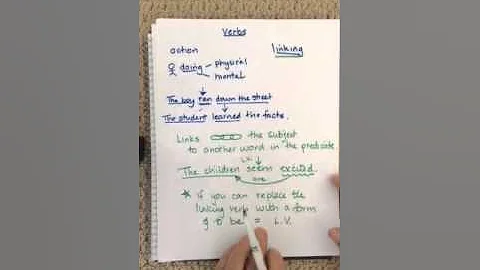 Verbs
action linking
doing physical
mental
The boy ran down the street
The student learned the facts.
Links the subject
to another word in the predicate.
L.V.
The children seem excited
are
* if you can replace the
linking verb with a form
of to be = L.V.